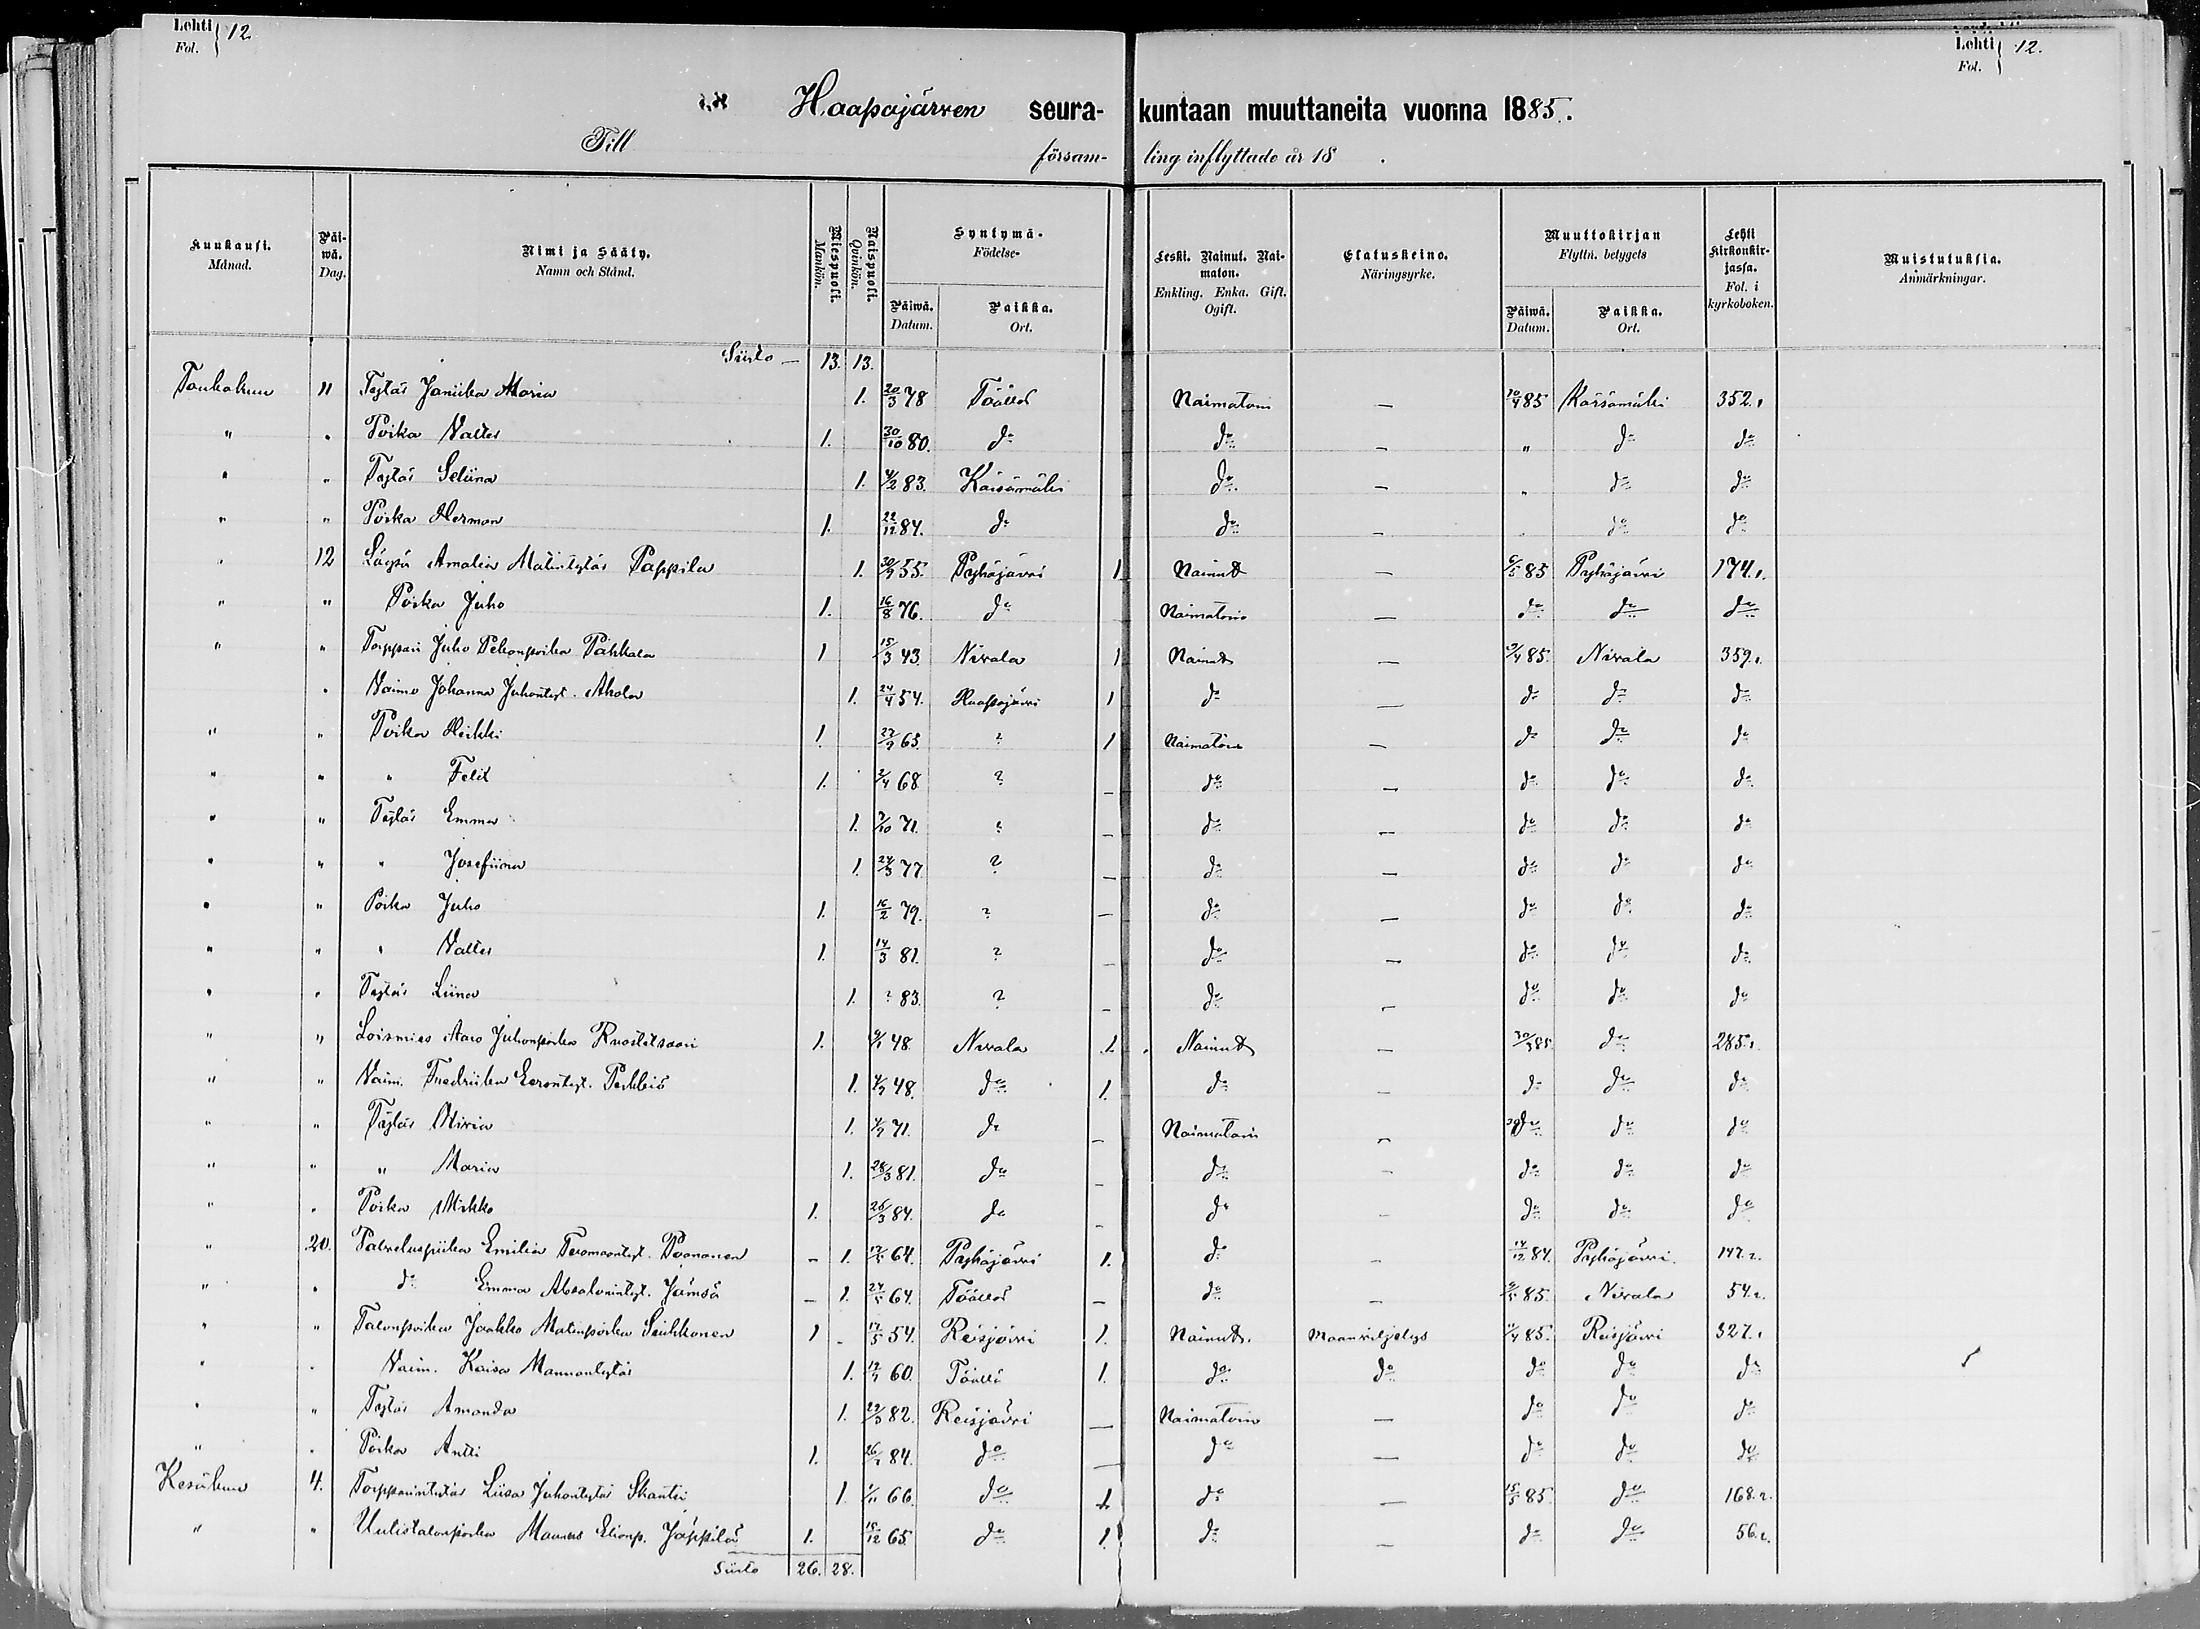 Lehti
Fol. } 12
Lehti
Fol. } 12.
Haapajärven seura- kuntaan muuttaneita vuonna 1885.
Till försam- ling inflyttade år 18 .
Kuukausi. Månad. Päiwä. Dag. Nimi ja Sääty. Namn och Stånd. Miespuoli. Mankön. Naispuoli. Qvinkön. Syntymä- Födelse- Päiwä. Datum. Paikka. Ort. Leski. Nainut. Naimaton. Enkling. Enka. Gift. Ogift. Elatuskeino. Näringsyrke. Muuttokirjan Flyttn. betygets Päiwä. Datum. Paikka. Ort. Lehti kirkonkirjassa. Fol. i kyrkoboken. Muistutuksia. Anmärkningar.
Siirto — 13. 13.
Toukokuu 11 Tytär Maria 1. 20/3 78 Täällä Naimatoin — 85 Kärsämäki 352.
" " Poika Valter 1. 30/10 80. do do — " do do
" " Tytär Seliina 1. 4/2 83. Kärsämäki do — " do do
" " Poika Herman 1. 22/12 84. do do — do do
" 12 Amalia Matintytär Pappila 1. 30/9 55. Pyhäjärvi 1 Nainut — 6/5 85 Pyhäjärvi 174.
" " Poika Juho 1. 16/8 76. do Naimatoin — do do do
" " Torppari Juho Pekanpoika Pahkala 1 15/3 43. Nivala 1 Nainut — 85. Nivala 359.
" Vaimo Johanna Juhontyt. Ahola 1. 24/4 54. Haapajärvi 1 do — do do do
" " Poika Heikki 1. 65. ? 1 Naimatoin — do do do
" " " Felix 1. 2/4 68 ? — do — do do do
" " Tytär Emma 1. 71. ? — do — do do do
" " " Josefiina 1. 24/3 77 ? — do — do do do
" " Poika Juho 1. 16/2 79. ? — do — do do do
" " " Valter 1. 14/3 81. ? — do — do do do
" " Tytär Liina 1. ? 83. ? — do — do do do
" " Loismies Aaro Juhonpoika 1. 48. Nivala 1. Nainut — 30/3 85 do 285.
" " Vaim. Fredriika Eerontyt. 1. 48. do 1. do — do do do
" " Tytär Olivia 1. 71. do — Naimatoin — do do do
" " " Maria 1. 28/3 81. do — do — do do do
" " Poika Mikko 1. 26/3 84. do — do — do do do
" 20. Palveluspiika Emilia Poananen — 1. 64. Pyhäjärvi 1. do — 14/12 84. Pyhäjärvi. 147.
" " do Emma Absalomintyt. Jämsä — 1. 24/5 64. Täällä — do — 85. Nivala 54.
" " Talonpoika Jaakko Matinpoika 1 — 17/5 54. Reisjärvi 1. Nainut. Maanviljelys 85. Reisjärvi 327.
" " Vaim. Kaisa Mannontytär 1. 60. Täällä 1. do do do do do
" " Tytär Amanda 1. 82. Reisjärvi — Naimatoin — do do do
" " Poika Antti 1. 84. do — do — do do do
Kesäkuu 4. Torpparintytär Liisa Juhontytär Skantsi 1. 1/11 66. do 1 do — 15/5 85. do 168.
" " Uutistalonpoika Maunus Elianp. Jäppilä 1. 15/12 65. do 1. do — do do 56.
Siirto 26. 28.